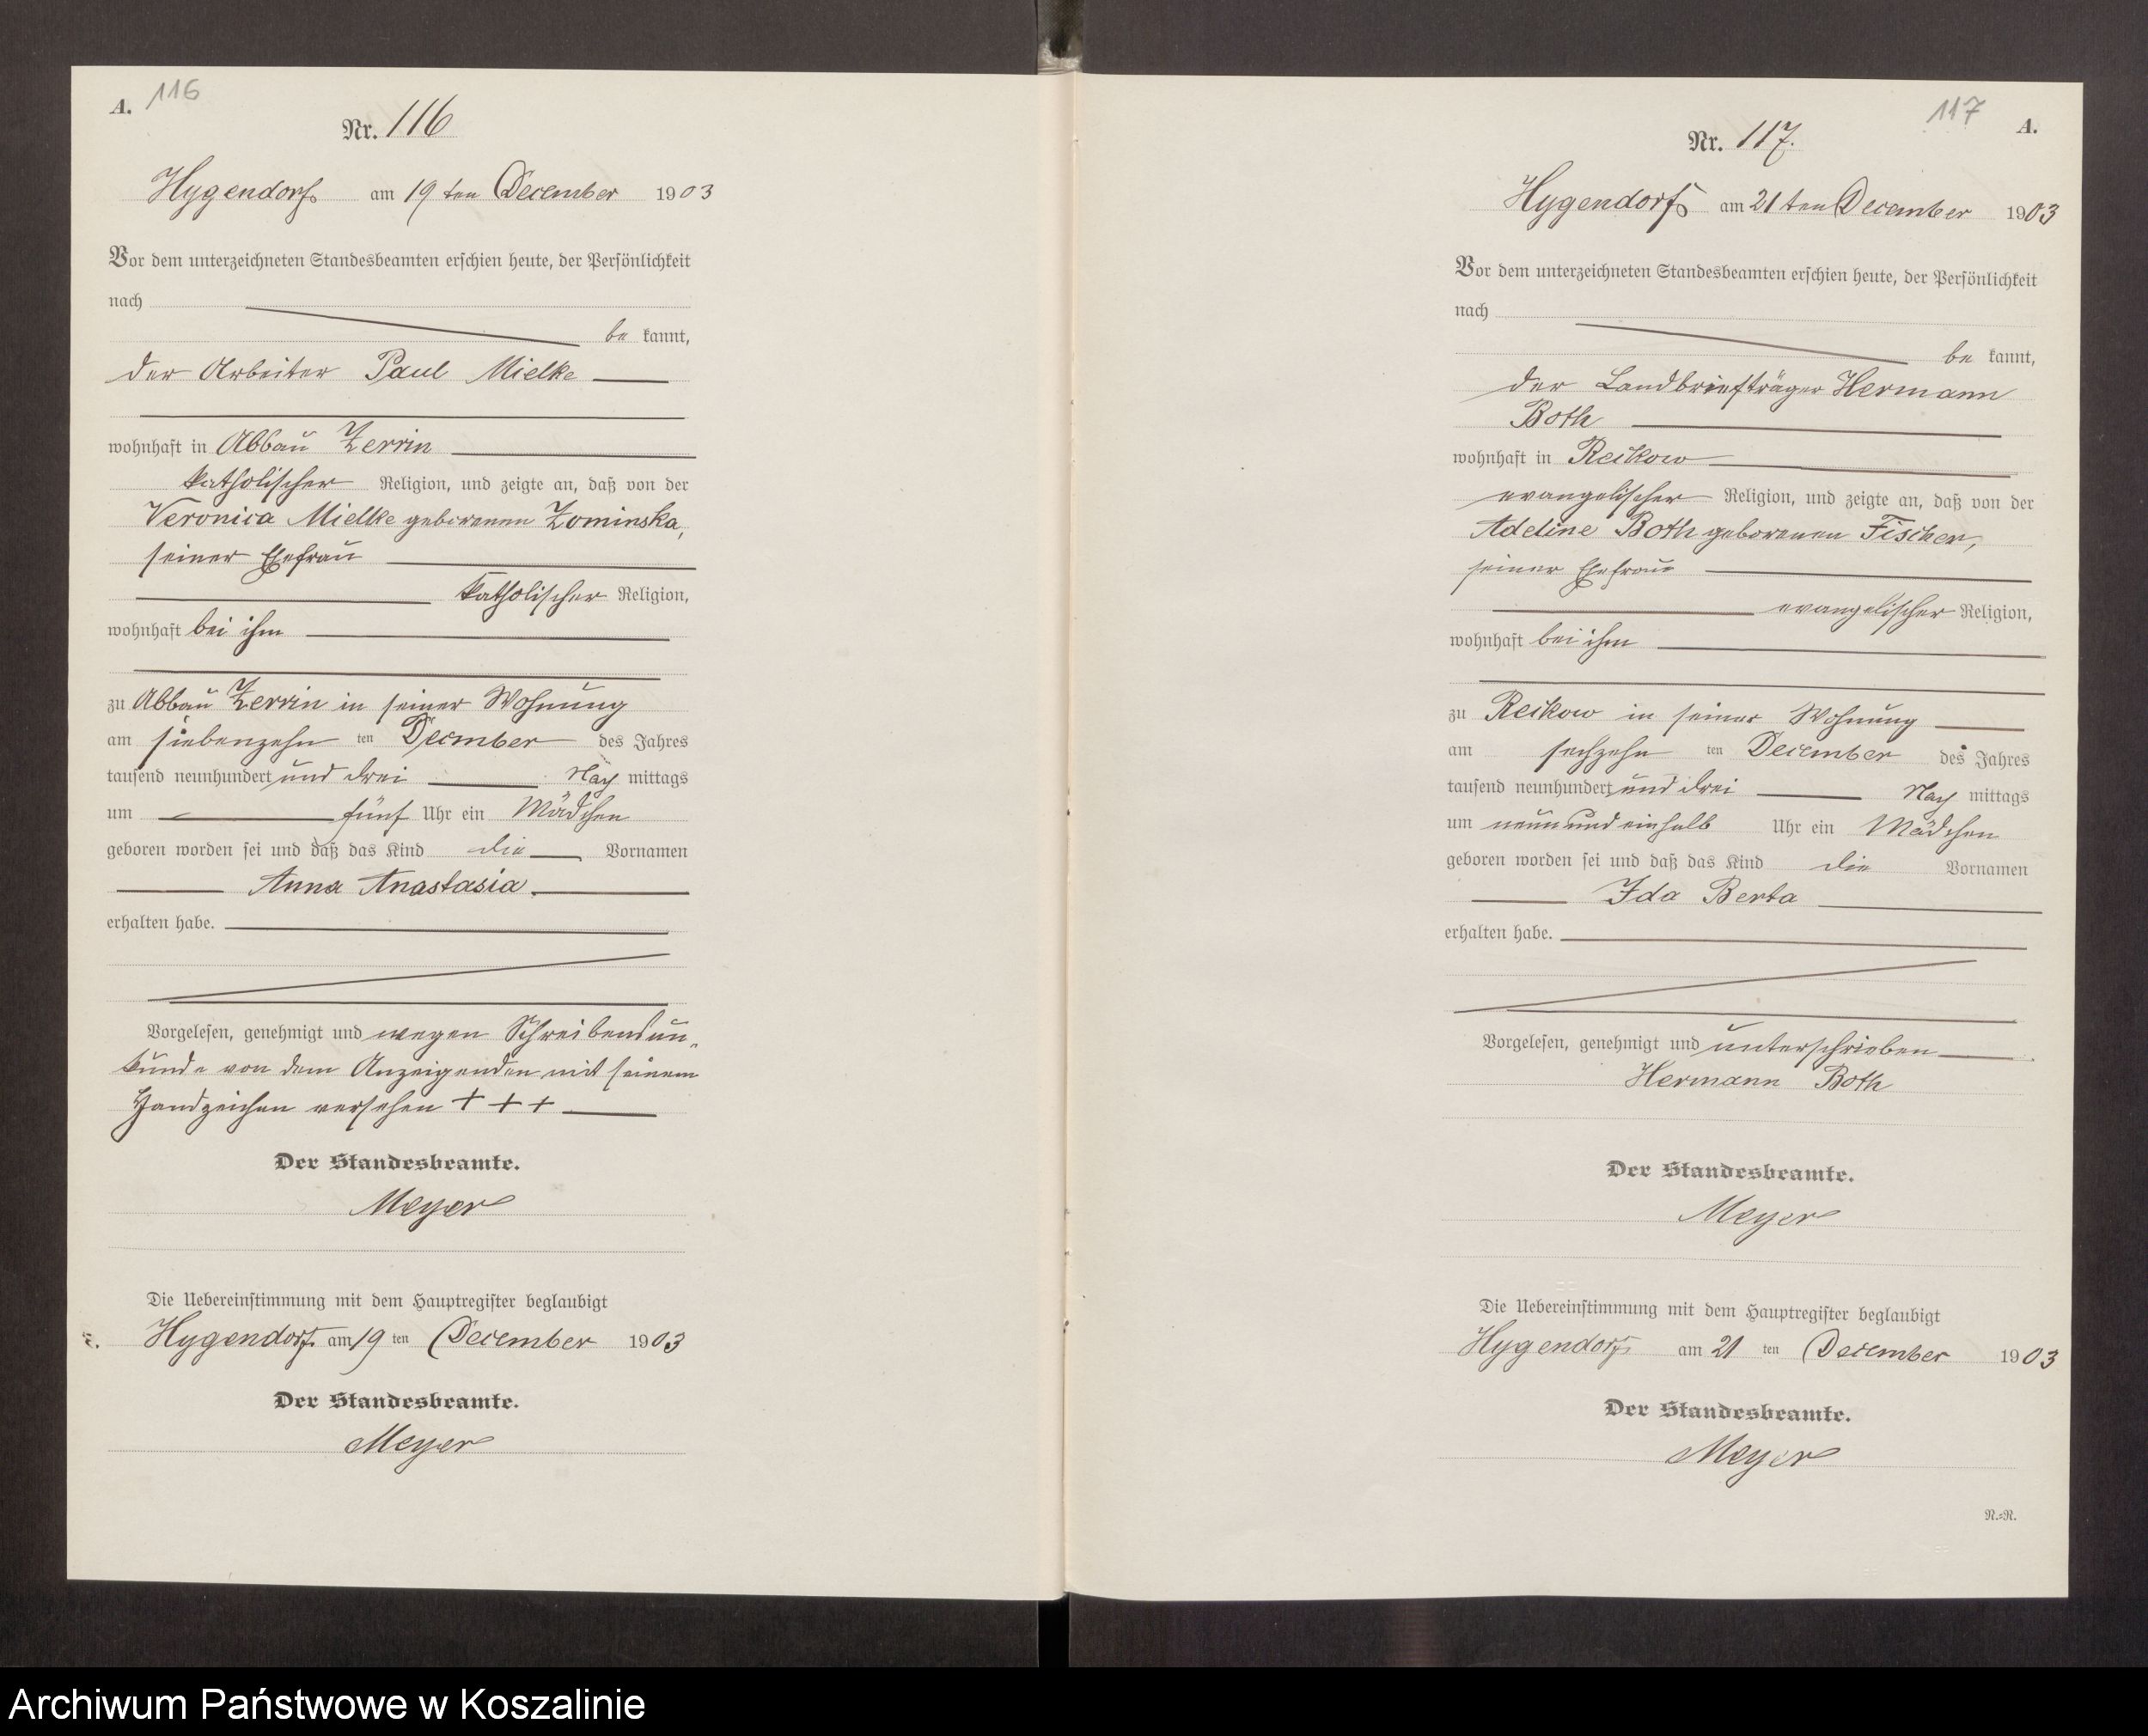 A. 116
Nr. 116
Hygendorf am 19ten December 1903
Vor dem unterzeichneten Standesbeamten erschien heute, der Persönlichkeit
nach
be kannt,
der Arbeiter Paul Mielke
wohnhaft in Abbau Zerrin
katholischer Religion, und zeigte an, daß von der
Veronica Mielke geborenen Zominska,
seiner Ehefrau
katholischer Religion,
wohnhaft bei ihm
zu Abbau Zerrin in seiner Wohnung
am siebenzehn ten December des Jahres
tausend neunhundert und drei Nach mittags
um fünf Uhr ein Mädchen
geboren worden sei und daß das Kind die Vornamen
Anna Anastasia.
erhalten habe.
Vorgelesen, genehmigt und wegen Schreibensun-
kunde von dem Anzeigenden mit seinem
Handzeichen versehen + + +
Der Standesbeamte.
Meyer
Die Uebereinstimmung mit dem Hauptregister beglaubigt
Hygendorf am 19 ten December 1903
Der Standesbeamte.
Meyer
117 A.
Nr. 117.
Hygendorf am 21ten December 1903
Vor dem unterzeichneten Standesbeamten erschien heute, der Persönlichkeit
nach
be kannt,
der Landbriefträger Hermann
Both
wohnhaft in Reikow
evangelischer Religion, und zeigte an, daß von der
Adeline Both geborenen Fischer,
seiner Ehefrau
evangelischer Religion,
wohnhaft bei ihm
zu Reikow in seiner Wohnung
am sechzehn ten December des Jahres
tausend neunhundert und drei Nach mittags
um neun und einhalb Uhr ein Mädchen
geboren worden sei und daß das Kind die Vornamen
Ida Berta
erhalten habe.
Vorgelesen, genehmigt und unterschrieben
Hermann Both
Der Standesbeamte.
Meyer
Die Uebereinstimmung mit dem Hauptregister beglaubigt
Hygendorf am 21 ten December 1903
Der Standesbeamte.
Meyer
N.=N.
Archiwum Państwowe w Koszalinie